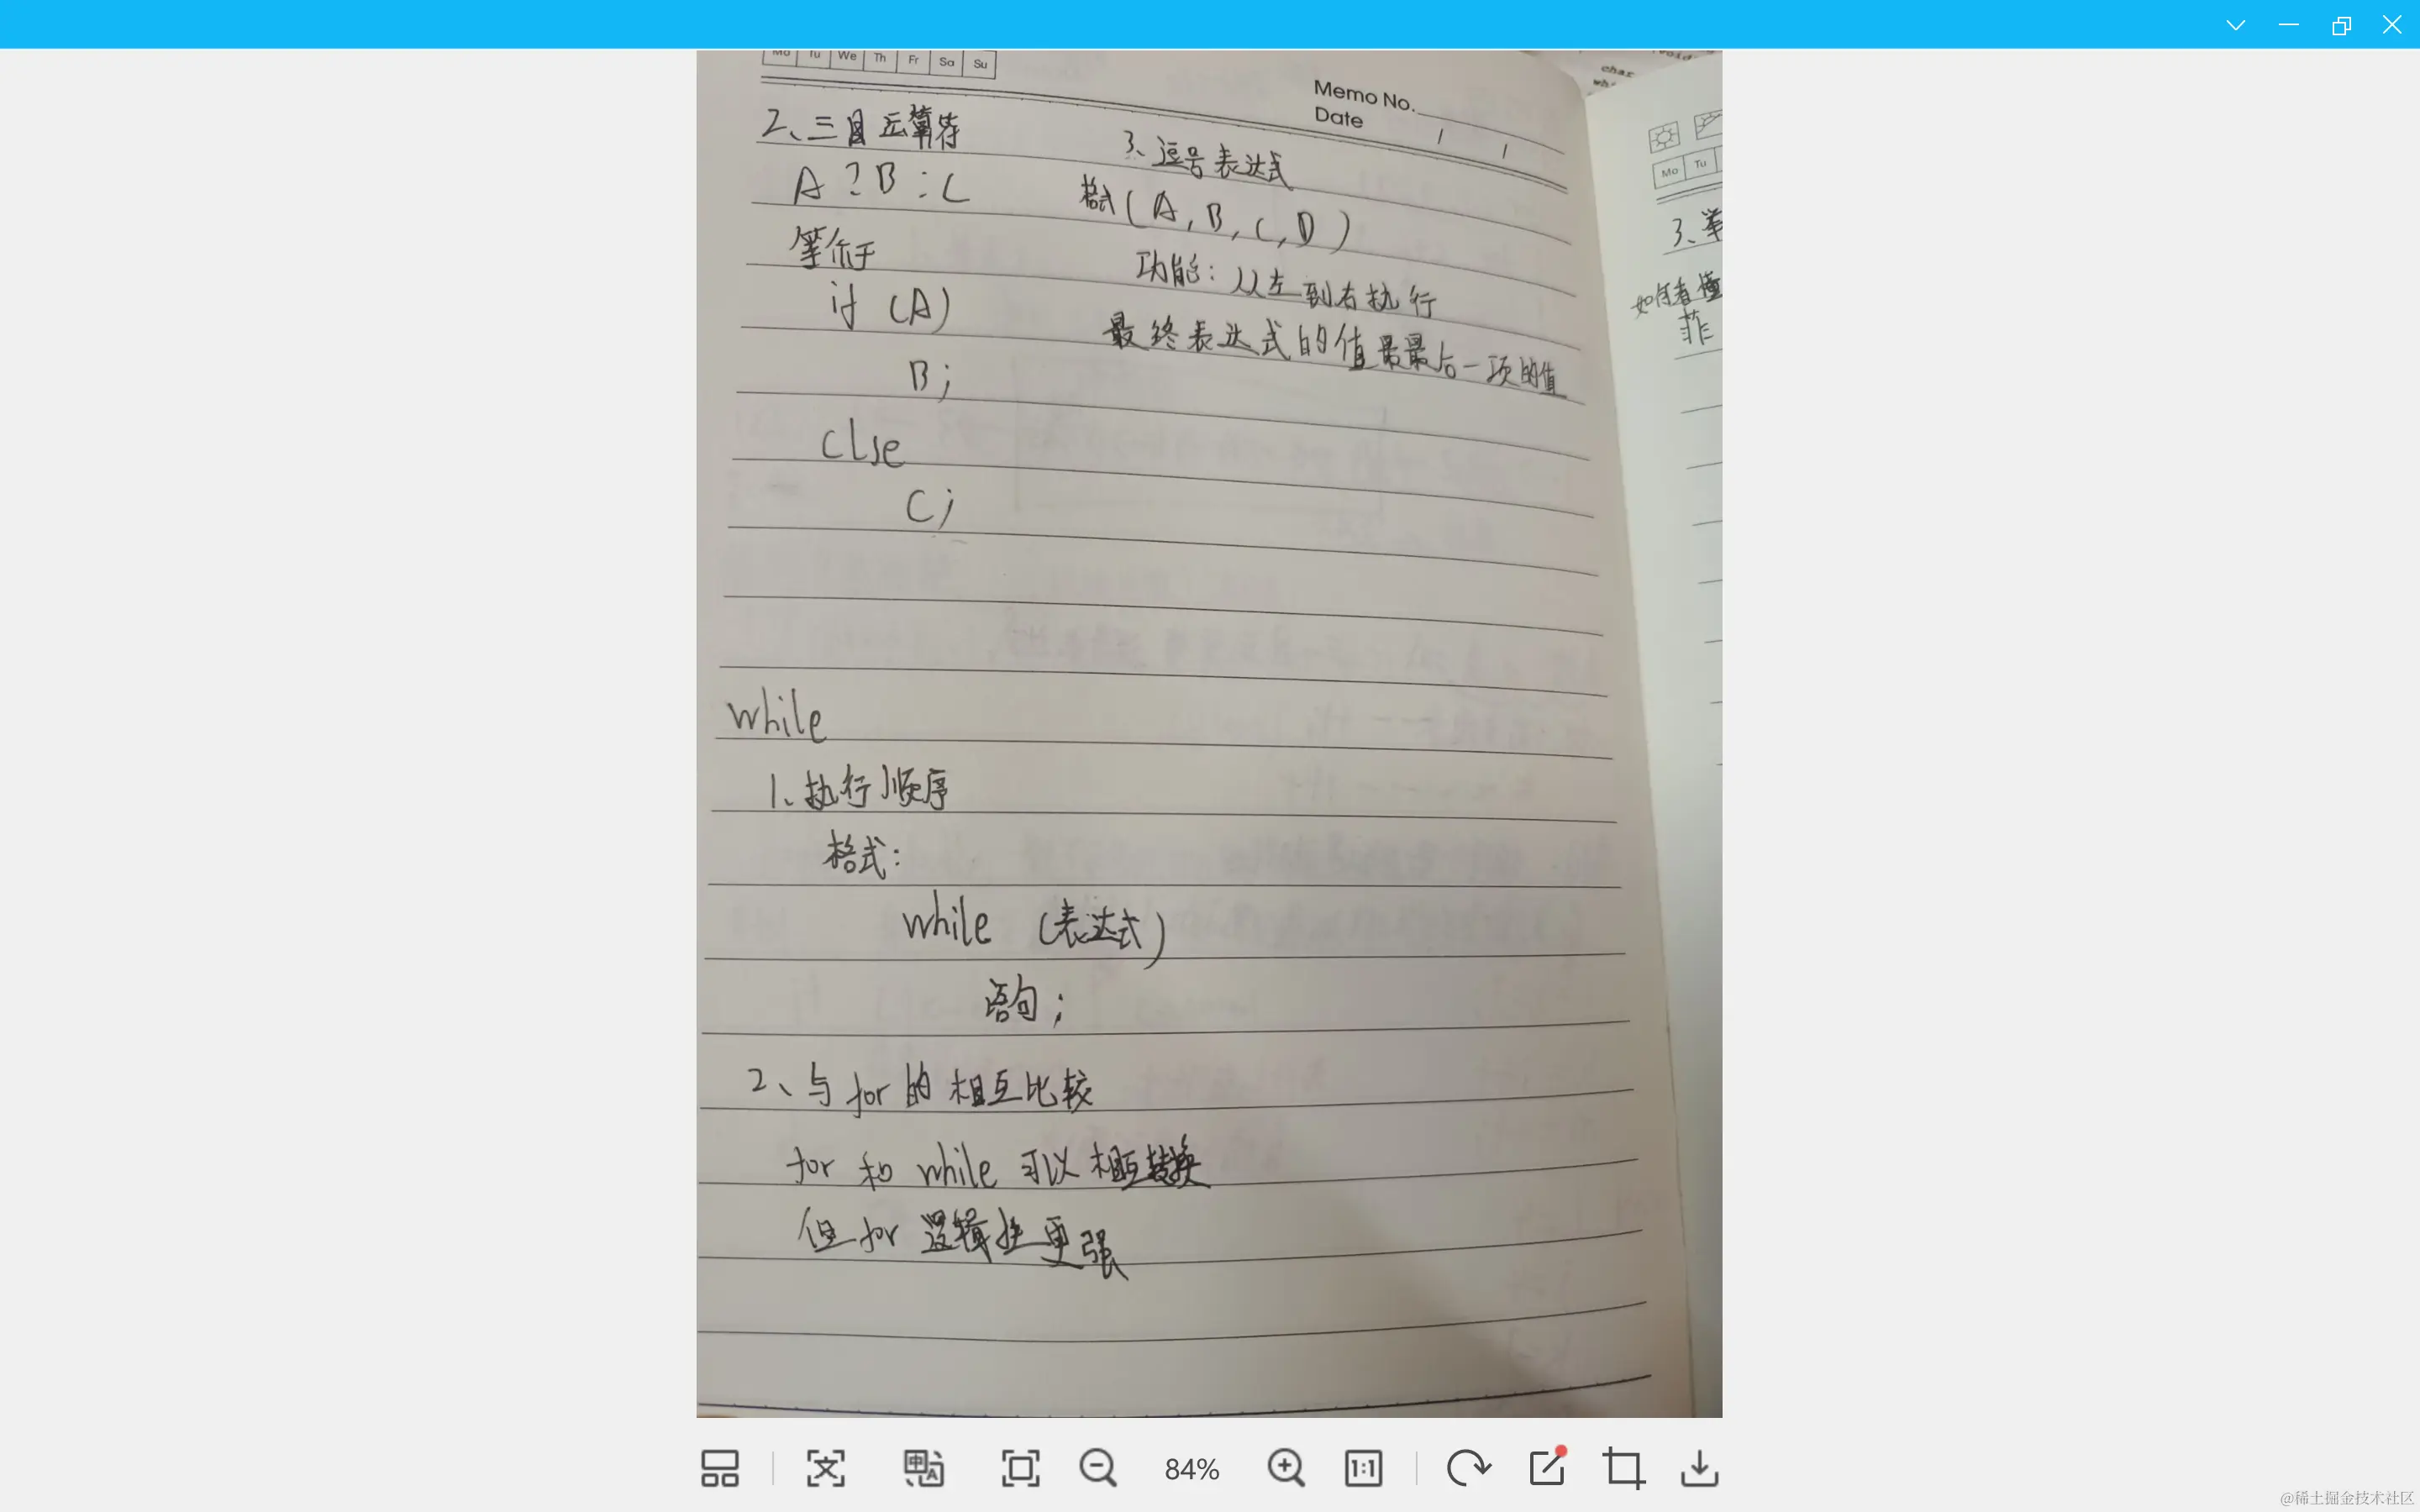 Mo Tu We Th Fr Sa Su
Memo No.
Date / /
2、三目运算符
A ? B : C
等价于
if (A)
B;
else
C;
3、逗号表达式
格式(A, B, C, D)
功能：从左到右执行
最终表达式的值是最后一项的值
while
1、执行顺序
格式：
while (表达式)
语句；
2、与for的相互比较
for 和 while 可以相互转换
但for 逻辑性更强
char
Mo Tu
3、
如何看懂
84%
1:1
@稀土掘金技术社区